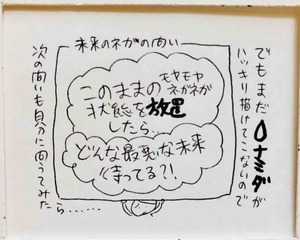 でもまだ〇ナミダが
ハッキリ描けてこないので
未来のネガの問い
このままの
モヤモヤ
ネガネガ
状態を放置
したら…
どんな最悪な未来
待ってる?!
次の問いも自分に問うてみた
ら……